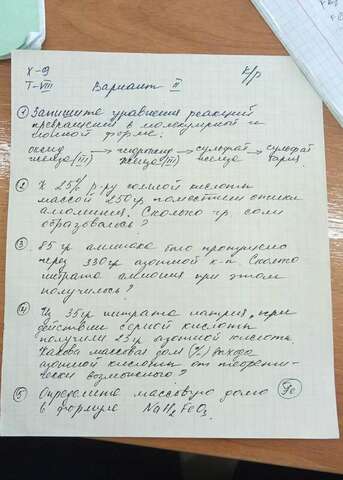 X-9
Т-VIII Вариант II К/р
① Запишите уравнения реакций
превращений в молекулярной и
ионной форме:
оксид → гидроксид → сульфат → сульфат
железа (III) железа (III) железа бария
② К 25% р-ру соляной кислоты
массой 250гр поместили опилки
алюминия. Сколько гр. соли
образовалось?
③ 85 гр аммиака было пропущено
через 330гр азотной к-ты. Сколько
нитрата аммония при этом
получилось?
④ Из 35гр нитрата натрия, при
действии серной кислоты
получили 23 гр азотной кислоты.
Какова массовая доля (%) выхода
азотной кислоты от теорети-
чески возможного?
⑤ Определите массовую долю Fe
в формуле NaH₂FeO₃